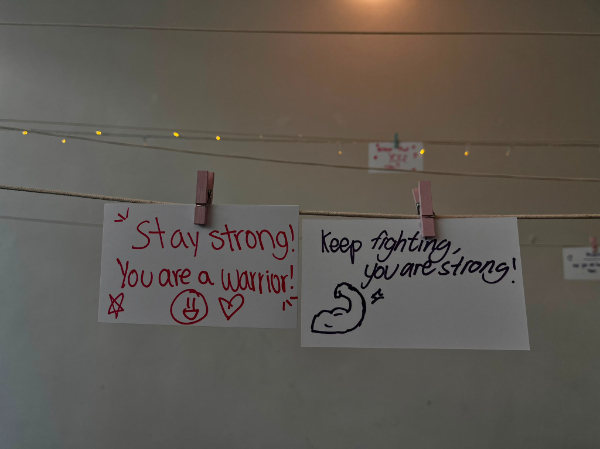 Stay strong!
You are a warrior!
Keep fighting,
you are strong!